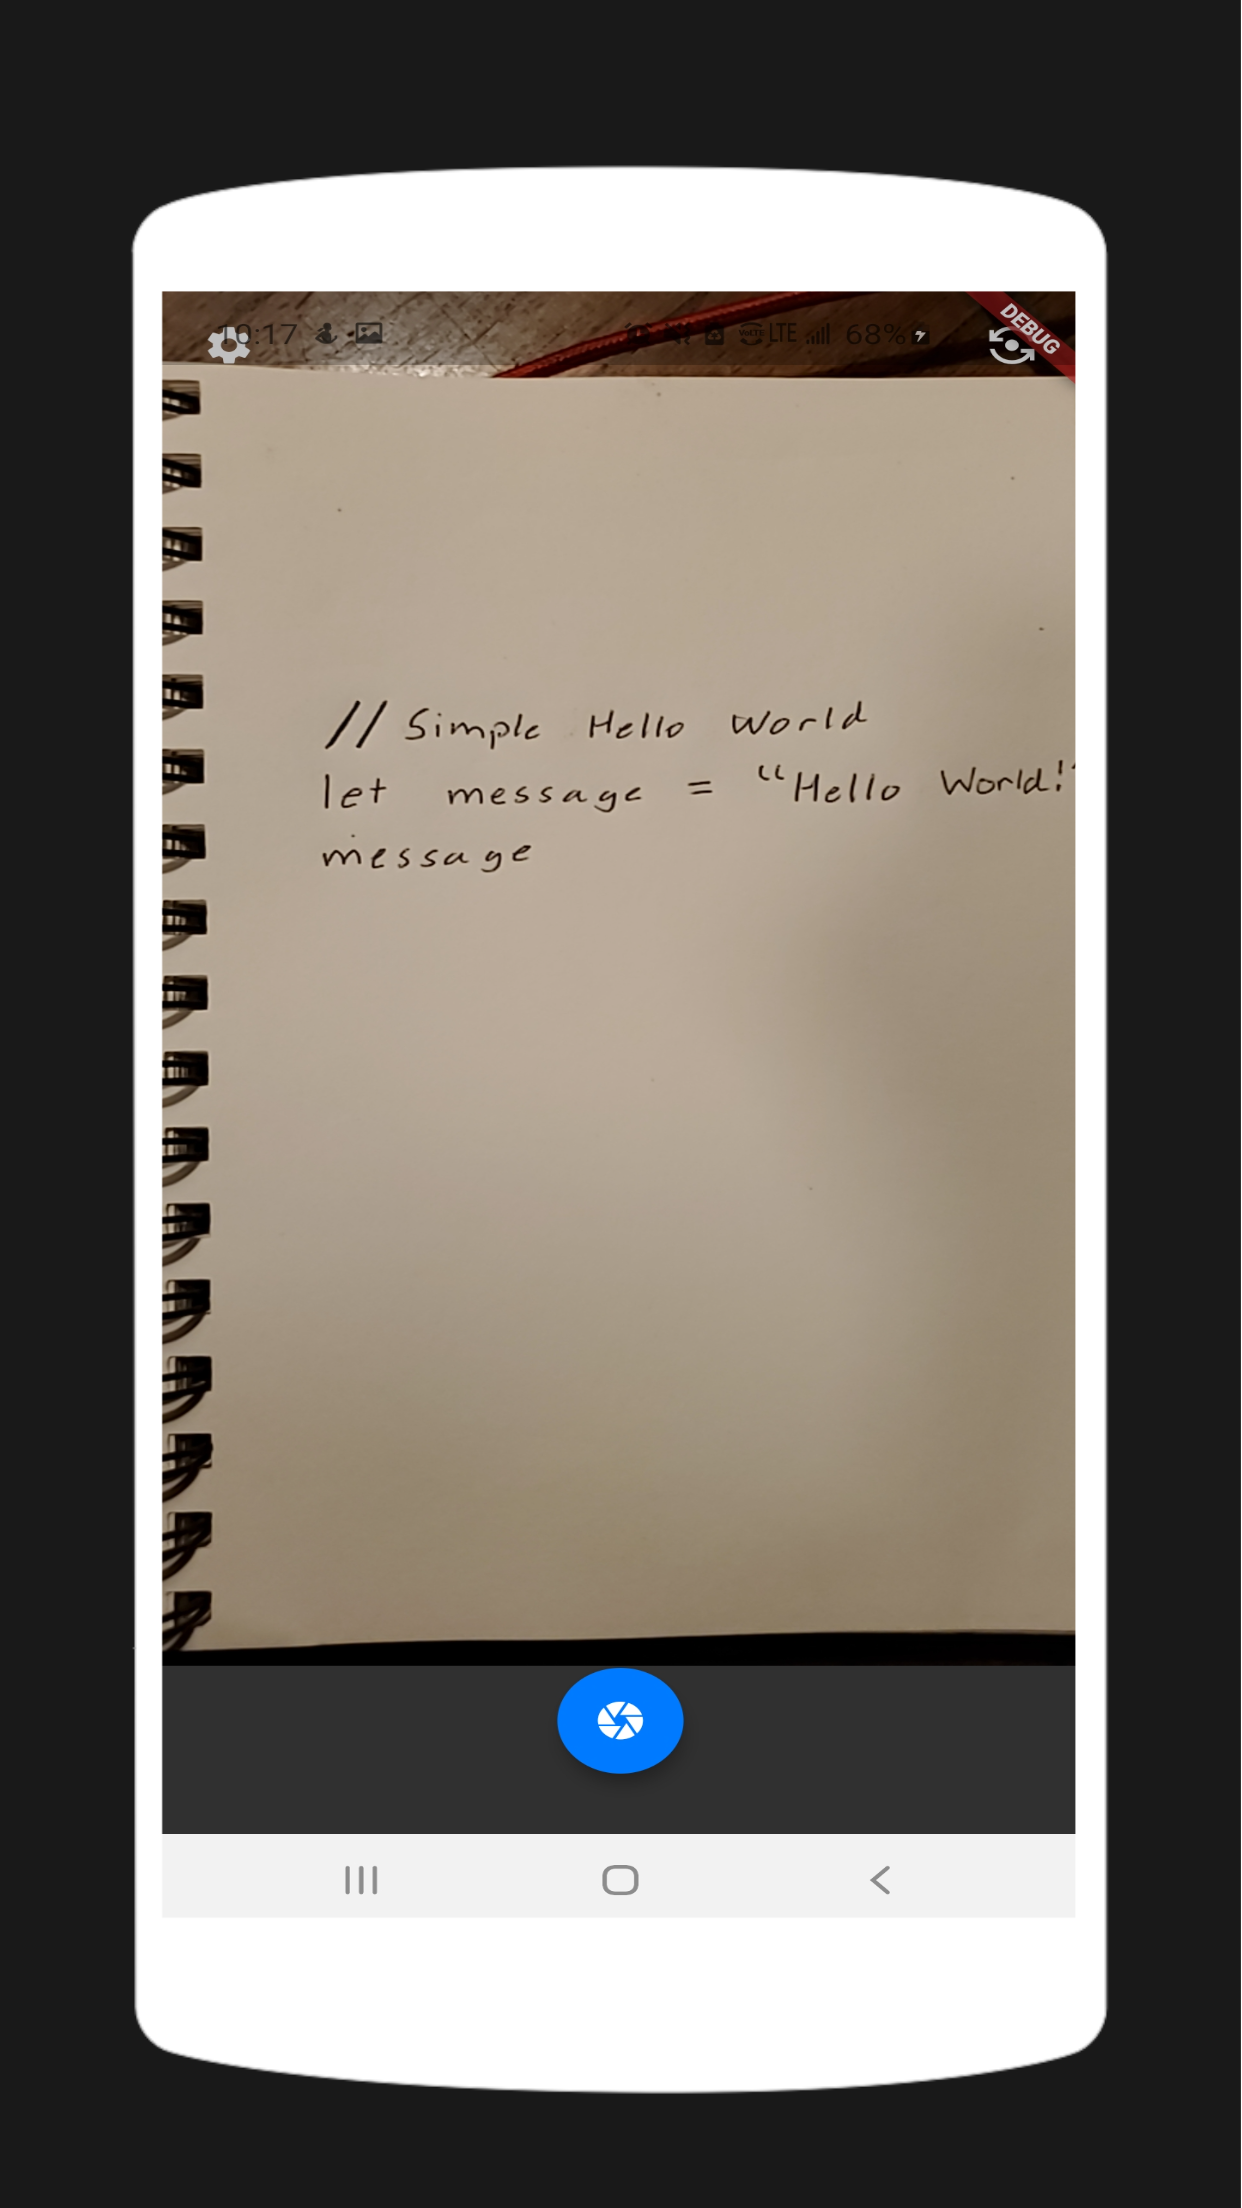 :17 LTE 68% DEBUG
// Simple Hello World
let message = “Hello World!
message